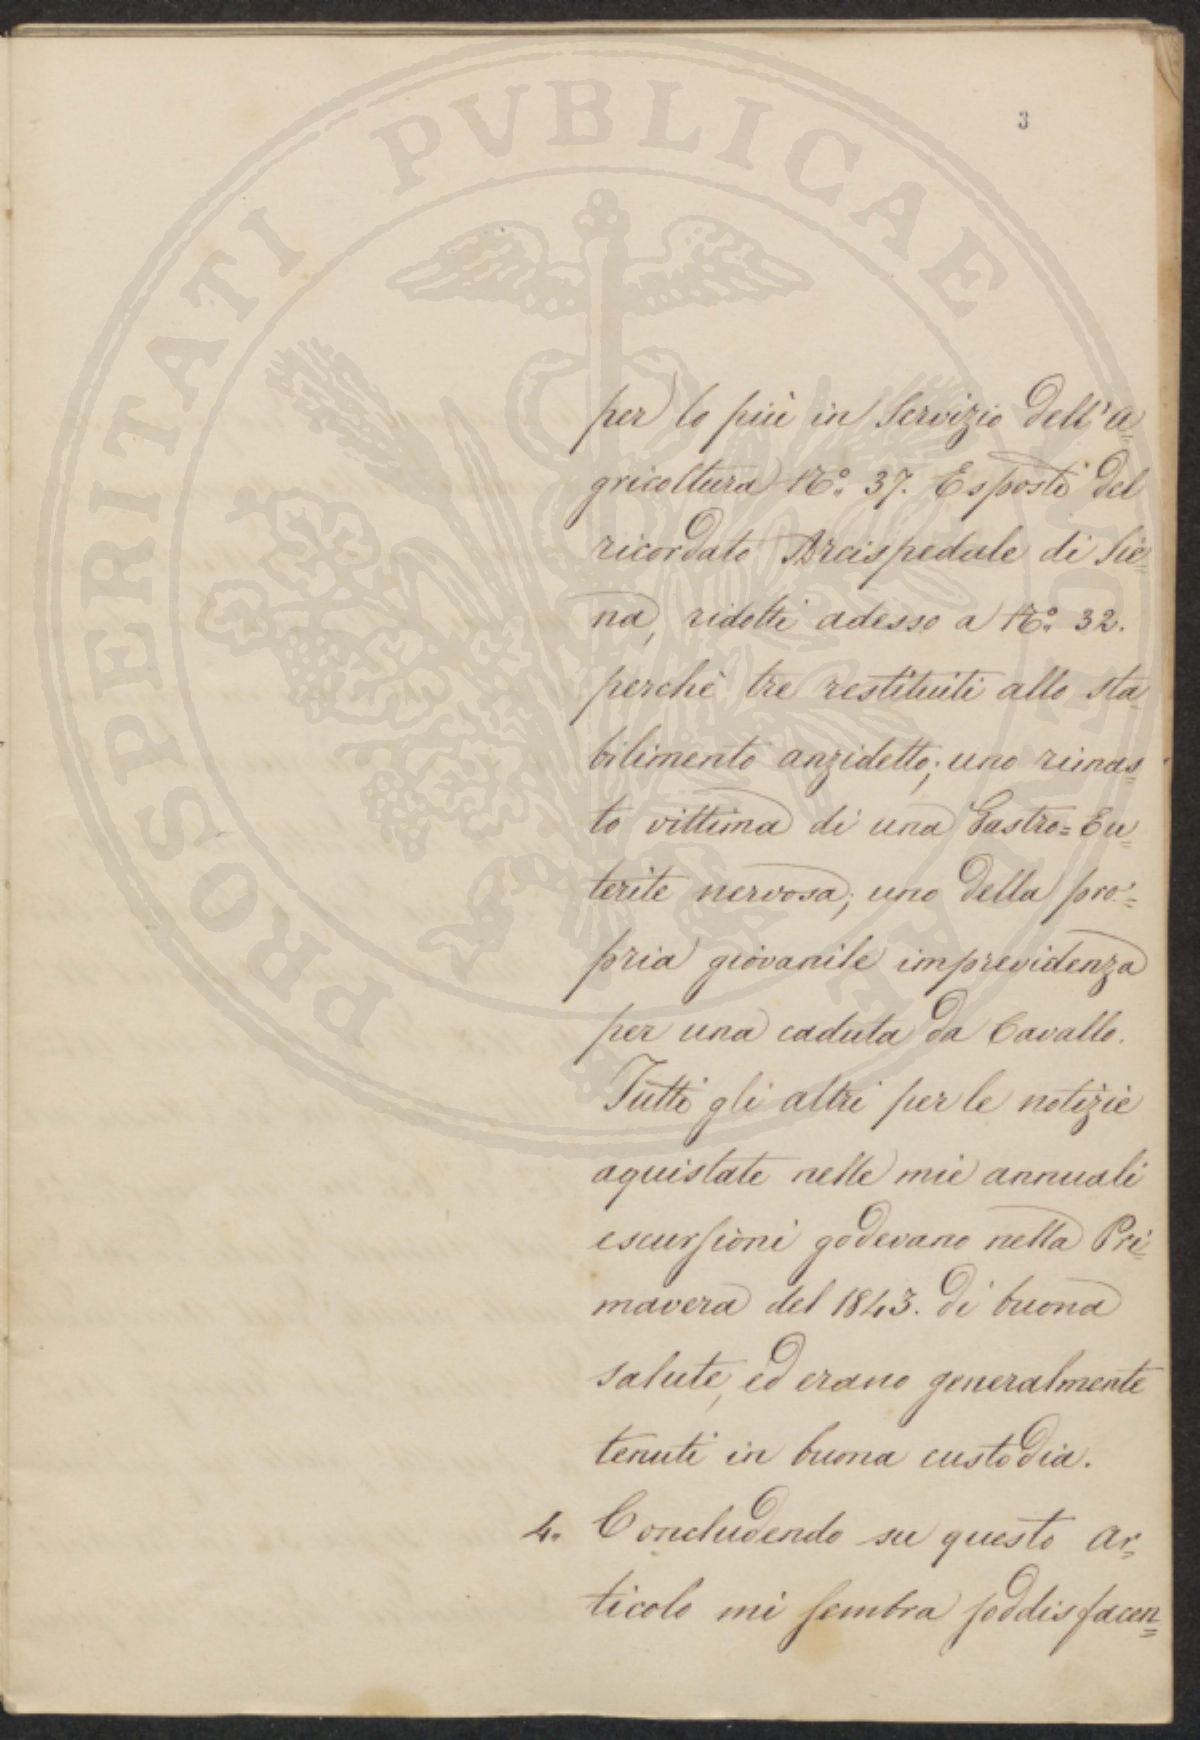 3
PROSPERITATI PVBLICAE AVGENDAE
per lo più in Servizio dell'A=
gricoltura N.° 37. Esposti del
ricordato Arcispedale di Sie=
na, ridotti adesso a N.° 32.
perchè tre restituiti allo sta
bilimento anzidetto; uno rimas=
to vittima di una Gastro=En=
terite nervosa; uno della pro=
pria giovanile imprevidenza
per una caduta da Cavallo.
Tutti gli altri per le notizie
aquistate nelle mie annuali
escursioni godevano nella Pri=
mavera del 1843. di buona
salute, ed erano generalmente
tenuti in buona custodia.
4. Concludendo su questo Ar=
ticolo mi sembra soddisfacen=